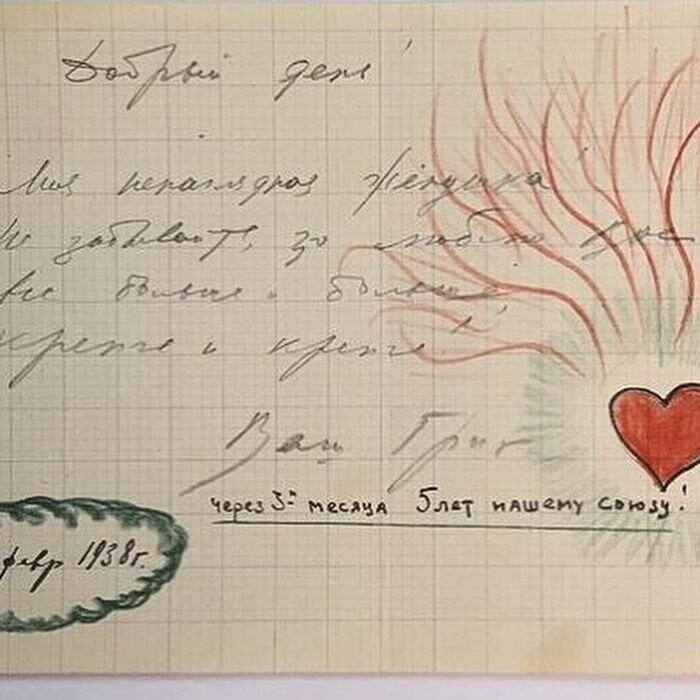 Добрый день!
Моя ненаглядная жёнушка!
Не забывайте, я люблю Вас
все больше и больше
крепче и крепче!
Ваш Гри
через 3 месяца 5 лет нашему союзу!
февр 1938г.